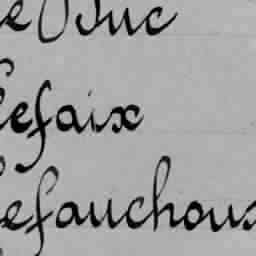 Le Duc
Lefaix
Lefauchoux